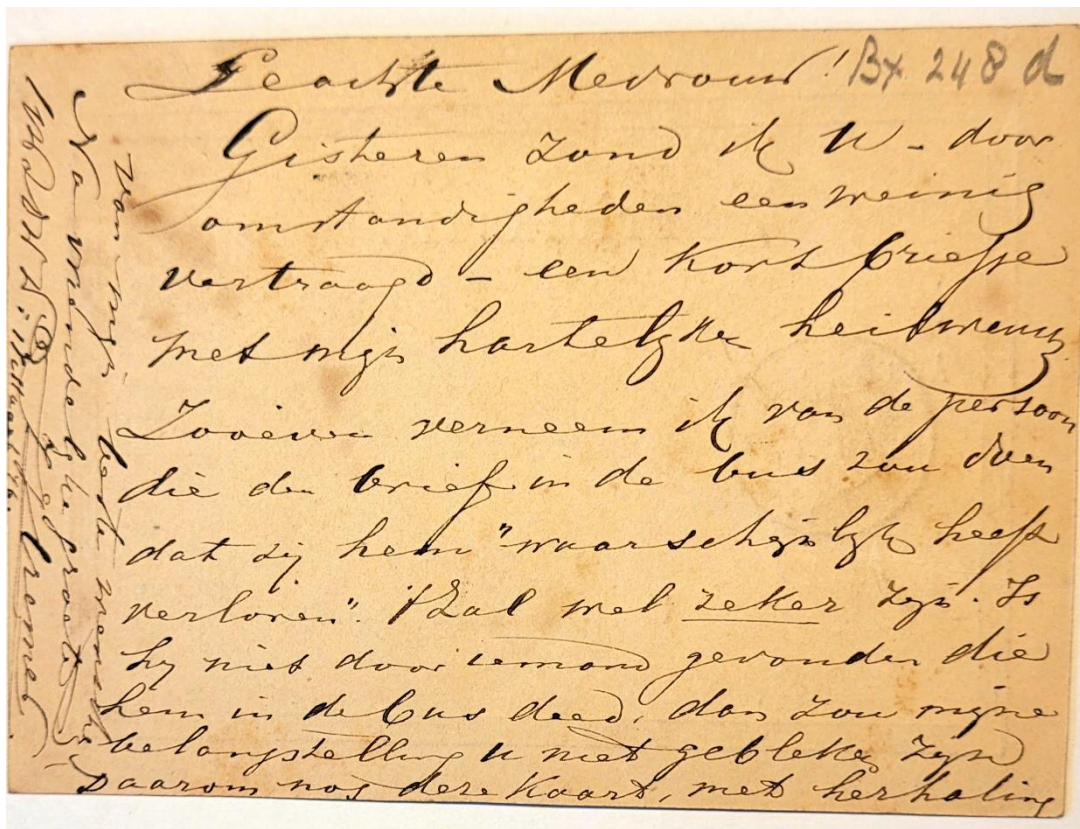 Geachte Mevrouw!
Bx 248 d
Gisteren zond ik U - door
omstandigheden een weinig
vertraagd - een kort briefje
met mijn hartelijke heilwensch.
Zooeven verneem ik van de persoon
die den brief in de bus zou doen
dat zij hem "waarschijnlijk heeft
verloren". 't Zal wel zeker zijn. Is
hij niet door iemand gevonden die
hem in de bus deed, dan zou mijne
belangstelling U niet gebleken zijn
Daarom nog deze Kaart, met herhaling
van mijn beste wenschen.
Na vriendelijke groete